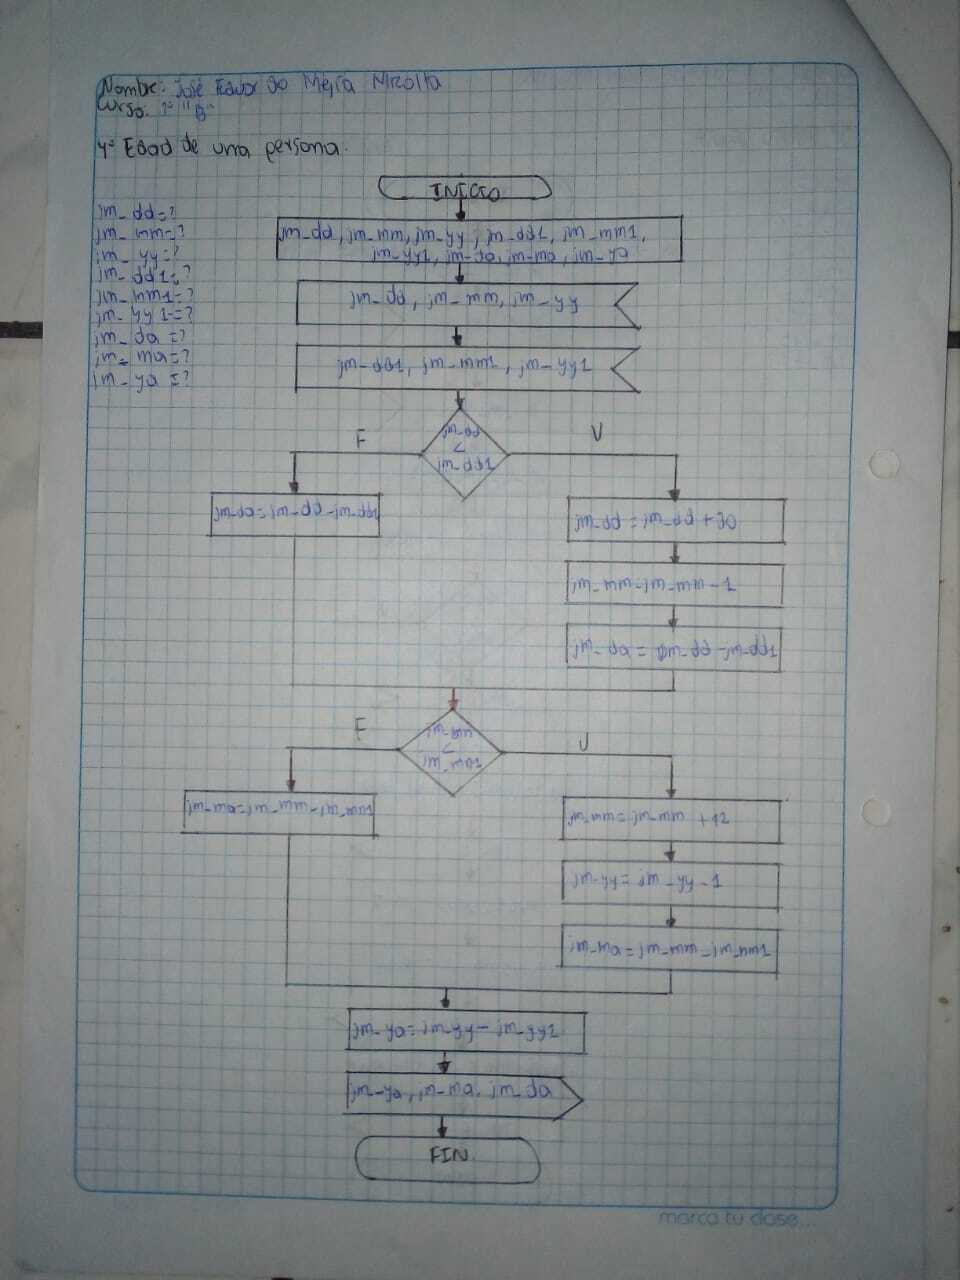 Nombre: José Eduardo Mejía Micolta
Curso: 1° "B"
4° Edad de una persona.
INICIO
jm_dd=?
jm_mm=?
jm_yy=?
jm_dd1=?
jm_mm1=?
jm_yy1=?
jm_da=?
jm_ma=?
jm_ya=?
jm_dd, jm_mm, jm_yy, jm_dd1, jm_mm1,
jm_yy1, jm_da, jm_ma, jm_ya
jm_dd, jm_mm, jm_yy
jm_dd1, jm_mm1, jm_yy1
F
V
jm_dd
>
jm_dd1
jm_da=jm_dd-jm_dd1
jm_dd=jm_dd+30
jm_mm=jm_mm-1
jm_dd1
F
V
jm_mm
>
jm_mm1
jm_ma=jm_mm-jm_mm1
jm_mm=jm_mm+12
jm_yy=jm_yy-1
jm_ma=jm_mm-jm_mm1
jm_ya=jm_yy-jm_yy1
jm_ya, jm_ma, jm_da
FIN
marca tu clase...